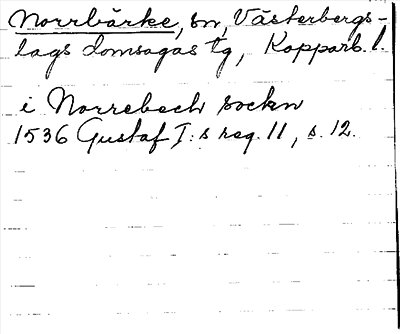 Norrbärke, sn, Västerbergs-
lags domsagas tg, Kopparb. l.
i Norrebech sockn
1536 Gustaf I:s reg. 11, s. 12.